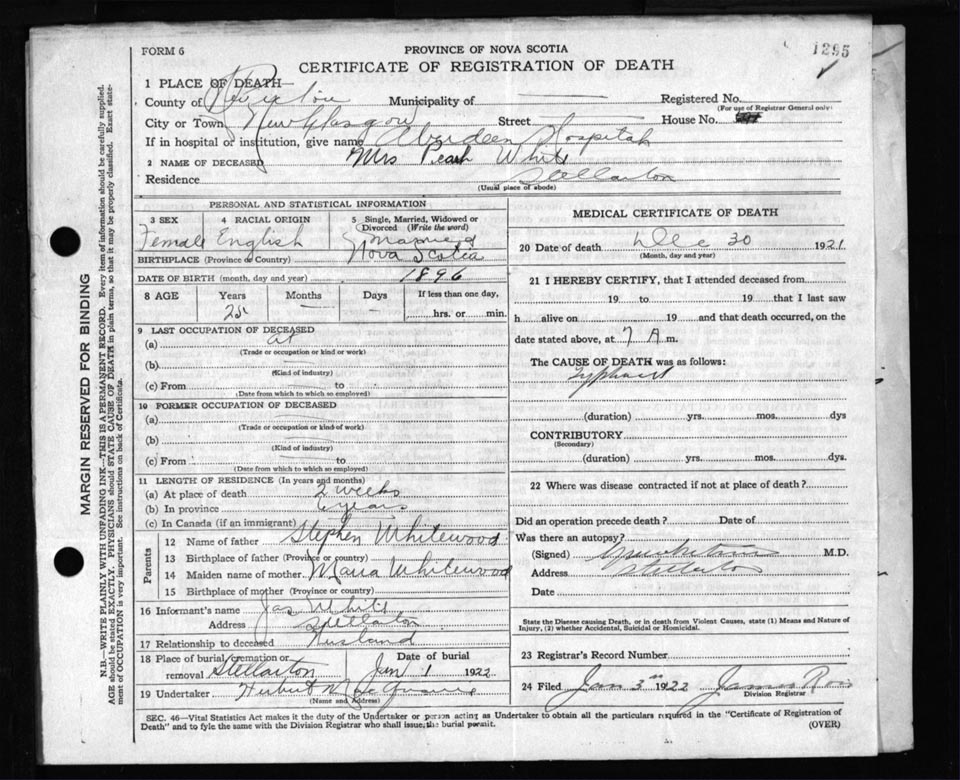 FORM 6
PROVINCE OF NOVA SCOTIA
1295
CERTIFICATE OF REGISTRATION OF DEATH
1 PLACE OF DEATH
County of Municipality of Registered No.
(For use of Registrar General only)
City or Town New Glasgow Street House No.
If in hospital or institution, give name Aberdeen Hospital
2 NAME OF DECEASED Mrs Pearl White
Residence Stellarton
(Usual place of abode)
PERSONAL AND STATISTICAL INFORMATION
3 SEX
Female
4 RACIAL ORIGIN
English
5 Single, Married, Widowed or Divorced (Write the word)
Married
BIRTHPLACE (Province or Country) Nova Scotia
DATE OF BIRTH (month, day and year) 1896
8 AGE Years Months Days If less than one day,
25 hrs. or min.
9 LAST OCCUPATION OF DECEASED
(a) at
(Trade or occupation or kind of work)
(b)
(Kind of industry)
(c) From to
(Date from which to which so employed)
10 FORMER OCCUPATION OF DECEASED
(a)
(Trade or occupation or kind of work)
(b)
(Kind of industry)
(c) From to
(Date from which to which so employed)
11 LENGTH OF RESIDENCE (In years and months)
(a) At place of death 2 weeks
(b) In province years
(c) In Canada (if an immigrant)
Parents
12 Name of father Stephen Whitewood
13 Birthplace of father (Province or country)
14 Maiden name of mother Maria Whitewood
15 Birthplace of mother (Province or country)
16 Informant's name Jas White
Address Stellarton
17 Relationship to deceased Husband
18 Place of burial, cremation or removal Stellarton
Date of burial
Jan 1 1922
19 Undertaker Herbert
(Name and Address)
MEDICAL CERTIFICATE OF DEATH
20 Date of death Dec 30 1921
(Month, day and year)
21 I HEREBY CERTIFY, that I attended deceased from
19 to 19 that I last saw
h alive on 19 and that death occurred, on
date stated above, at 7 A m.
The CAUSE OF DEATH was as follows:
Typhoid
(duration) yrs. mos. dys
CONTRIBUTORY
(Secondary)
(duration) yrs. mos. dys.
22 Where was disease contracted if not at place of death?
Did an operation precede death? Date of
Was there an autopsy?
(Signed) M.D.
Address Stellarton
Date
State the Disease causing Death, or in death from Violent Causes, state (1) Means and Nature of
Injury, (2) whether Accidental, Suicidal or Homicidal.
23 Registrar's Record Number
24 Filed Jan 3 1922 James Ross
Division Registrar
SEC. 46—Vital Statistics Act makes it the duty of the Undertaker or person acting as Undertaker to obtain all the particulars required in the "Certificate of Registration of
Death" and to fyle the same with the Division Registrar who shall issue the burial permit.
(OVER)
MARGIN RESERVED FOR BINDING
N.B.—WRITE PLAINLY WITH UNFADING INK—THIS IS A PERMANENT RECORD. Every item of information should be carefully supplied.
AGE should be stated EXACTLY. PHYSICIANS should STATE CAUSE OF DEATH in plain terms, so that it may be properly classified. Exact statement
of OCCUPATION is very important. See instructions on back of Certificate.